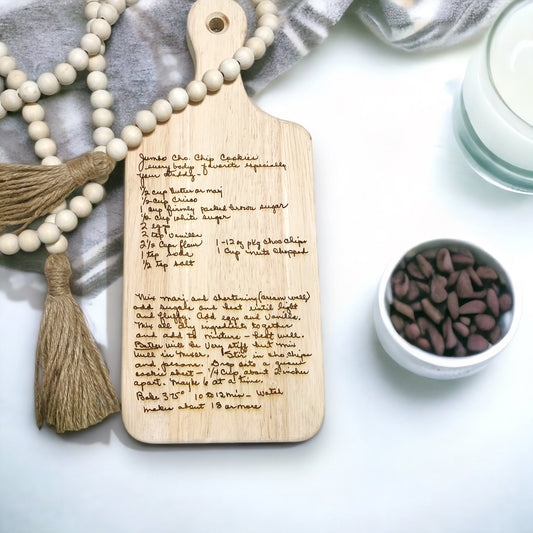 Jumbo Cho. Chip Cookies
everybody favorite especially
your daddy-
1/2 cup butter or marj
1/2 cup Crisco
1 cup firmly packed brown sugar
1/2 cup white sugar
2 eggs
2 tsp vanilla
2 1/2 cups flour 1-12 oz pkg choc chips
1 tsp soda 1 cup nuts chopped
1/2 tsp salt
Mix marj. and shortening (cream well)
add sugar and beat until light
and fluffy. Add eggs and vanilla.
Mix all dry ingredients together
and add to mixture - beat well.
Batter will be very stiff but mix
well in mixer. Stir in cho chips
and pecans. Drop onto a greased
cookie sheet - 1/4 cup about 2 inches
apart. Maybe 6 at a time.
Bake 375° 10 to 12 min - Watch
makes about 18 or more